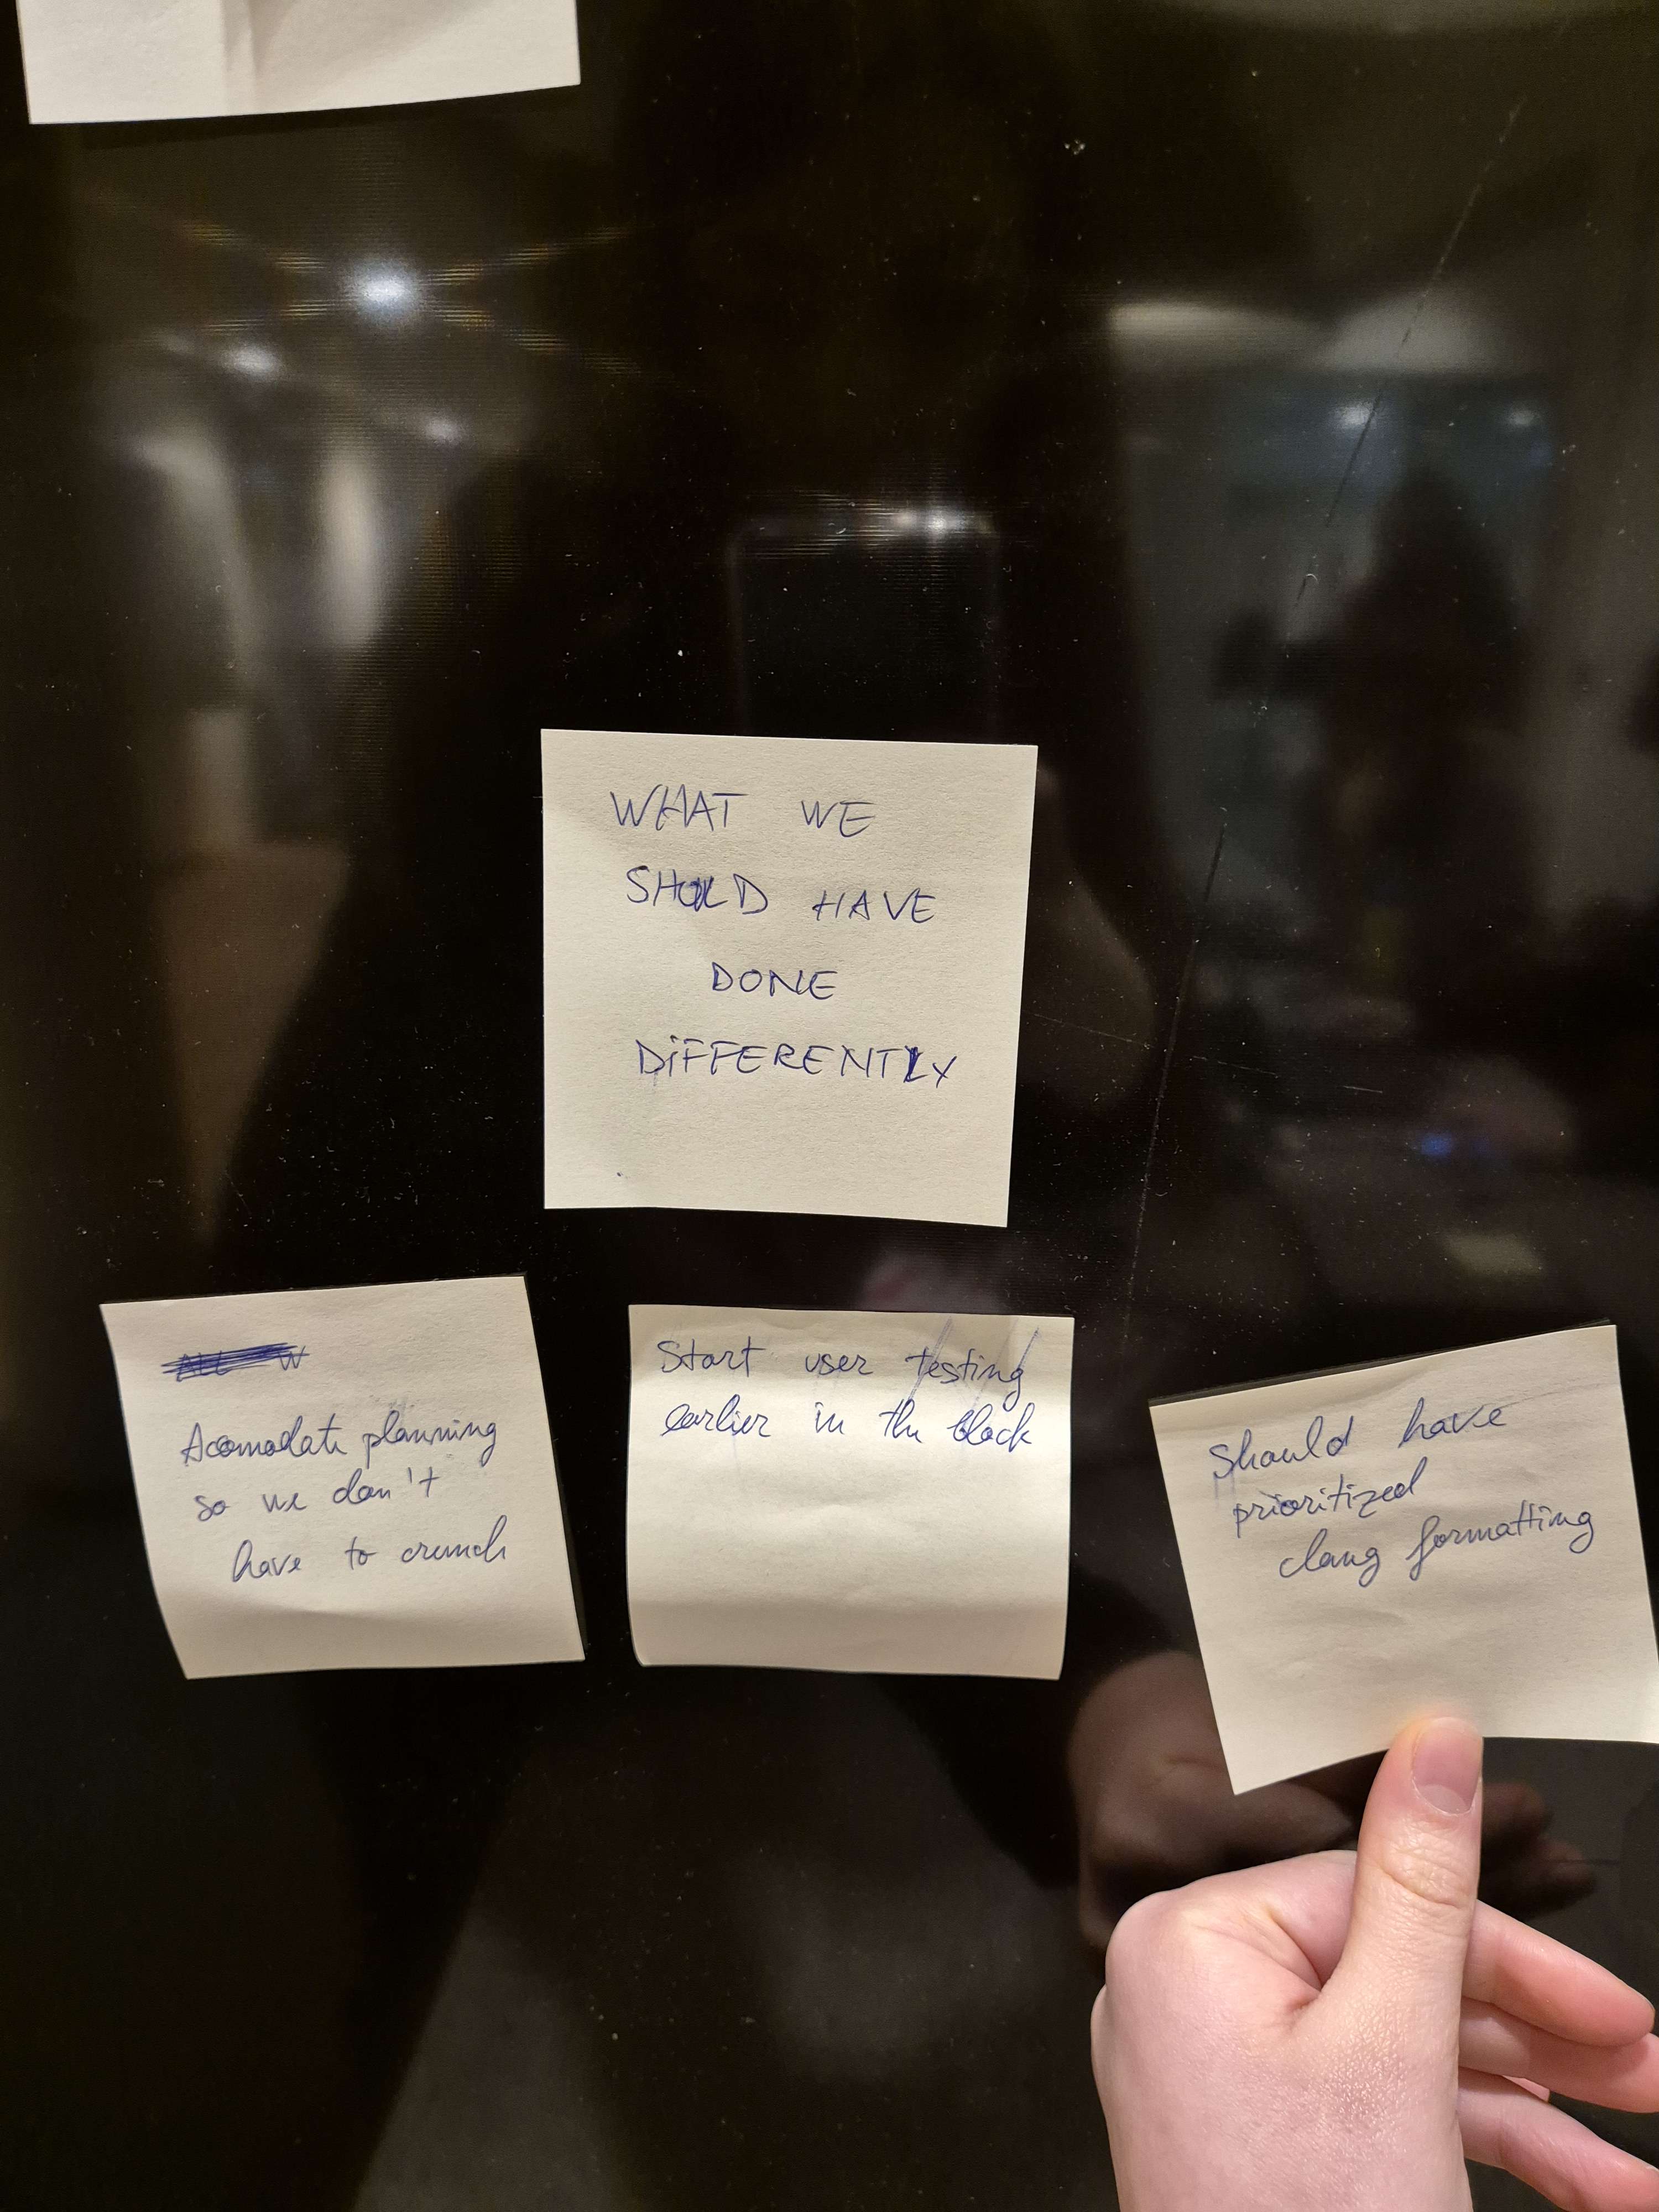 WHAT WE
SHOULD HAVE
DONE
DIFFERENTLY
Acomodate planning
so we don't
have to crunch
Start user testing
earlier in the block
Should have
prioritized
clang formatting